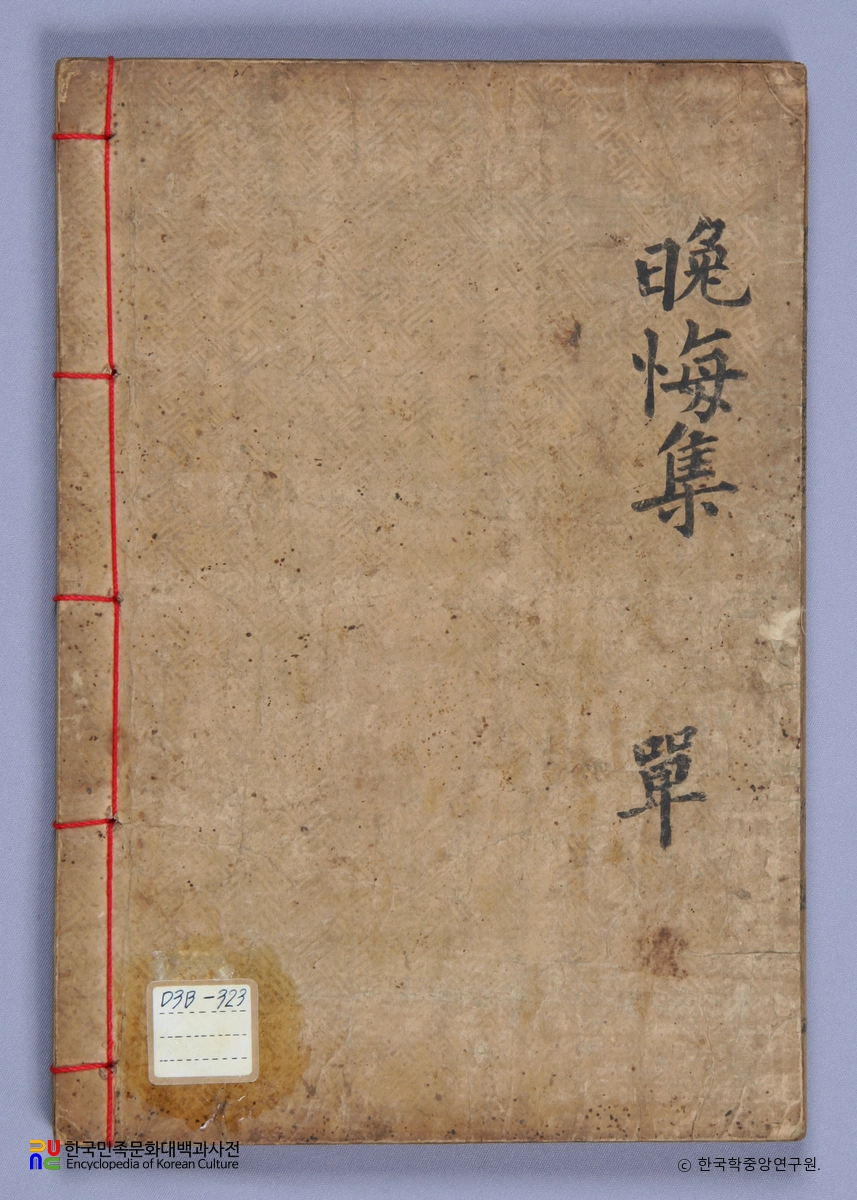 晩悔集
單
D3B-323
한국민족문화대백과사전
Encyclopedia of Korean Culture
© 한국학중앙연구원.